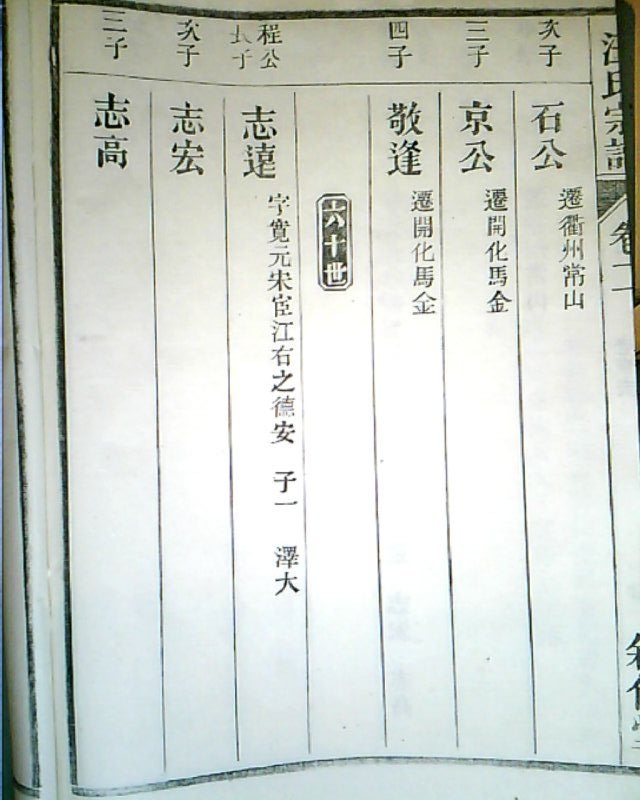 汪氏宗譜
卷二
次子
石公
遷衢州常山
三子
京公
遷開化馬金
四子
敬逢
遷開化馬金
六十世
程公
長子
志遠
字寬元宋宦江右之德安 子一 澤大
次子
志宏
三子
志高